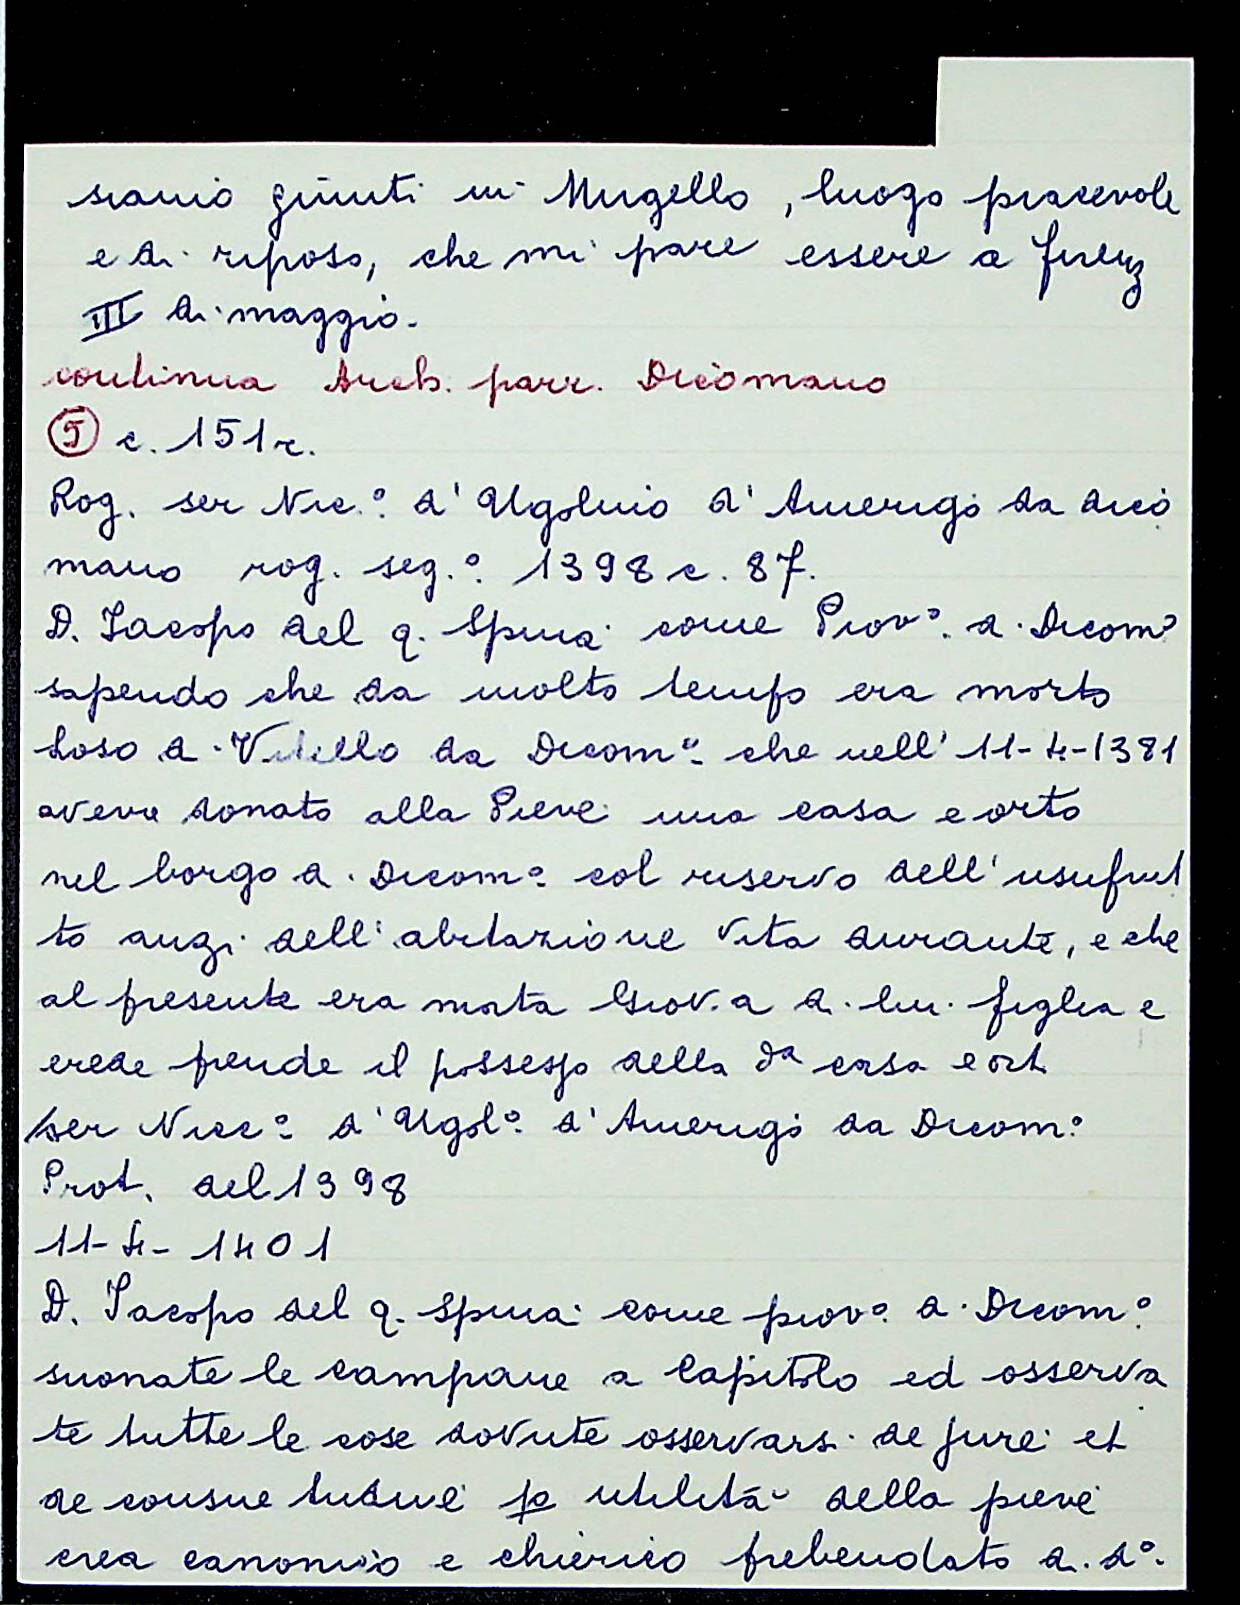 siamo giunti in Mugello, luogo piacevole
e di riposo, che mi pare essere a firenz
III di maggio.
continua Arch. parr. Dicomano
⑤ c. 151 r.
Rog. ser Nic.º d'Ugolino d'Amerigo da Dico
mano rog. seg.º 1398 c. 87.
D. Iacopo del q. Spina come Piovº. di Dicomº
sapendo che da molto tempo era morto
di Vitello da Dicomº che nell' 11-4-1381
aveva donato alla Pieve una casa e orto
nel borgo di Dicomº col riservo dell'usufrut
to anzi dell'abitazione vita durante, e che
al presente era morta Giov.a di lui figlia e
erede prende il possesso della dª casa e ort.
ser Niccº d'Ugolº d'Amerigo da Dicomº
Prot. del 1398
11-4-1401
D. Iacopo del q. Spina come piovº di Dicomº
suonate le campane a Capitolo ed osserva
te tutte le cose dovute osservarsi de jure et
de consuetudine p utilità della pieve
crea canonico e chierico prebendato di dº.